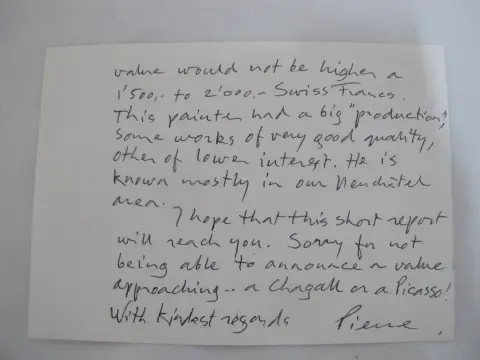 value would not be higher a
1'500,- to 2'000.- Swiss Francs.
This painter had a big "production",
some works of very good quality,
other of lower interest. He is
known mostly in our Neuchâtel
area.
I hope that this short report
will reach you. Sorry for not
being able to announce a value
approaching.. a Chagall or a Picasso!
With kindest regards Pierre.